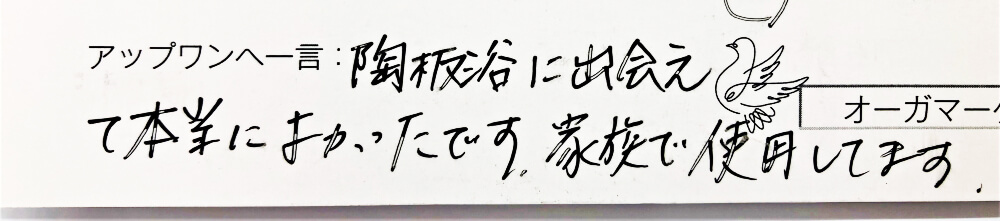 アップワンへ一言：陶板浴に出会え
て本当によかったです。家族で使用してます。
オーガマーケ